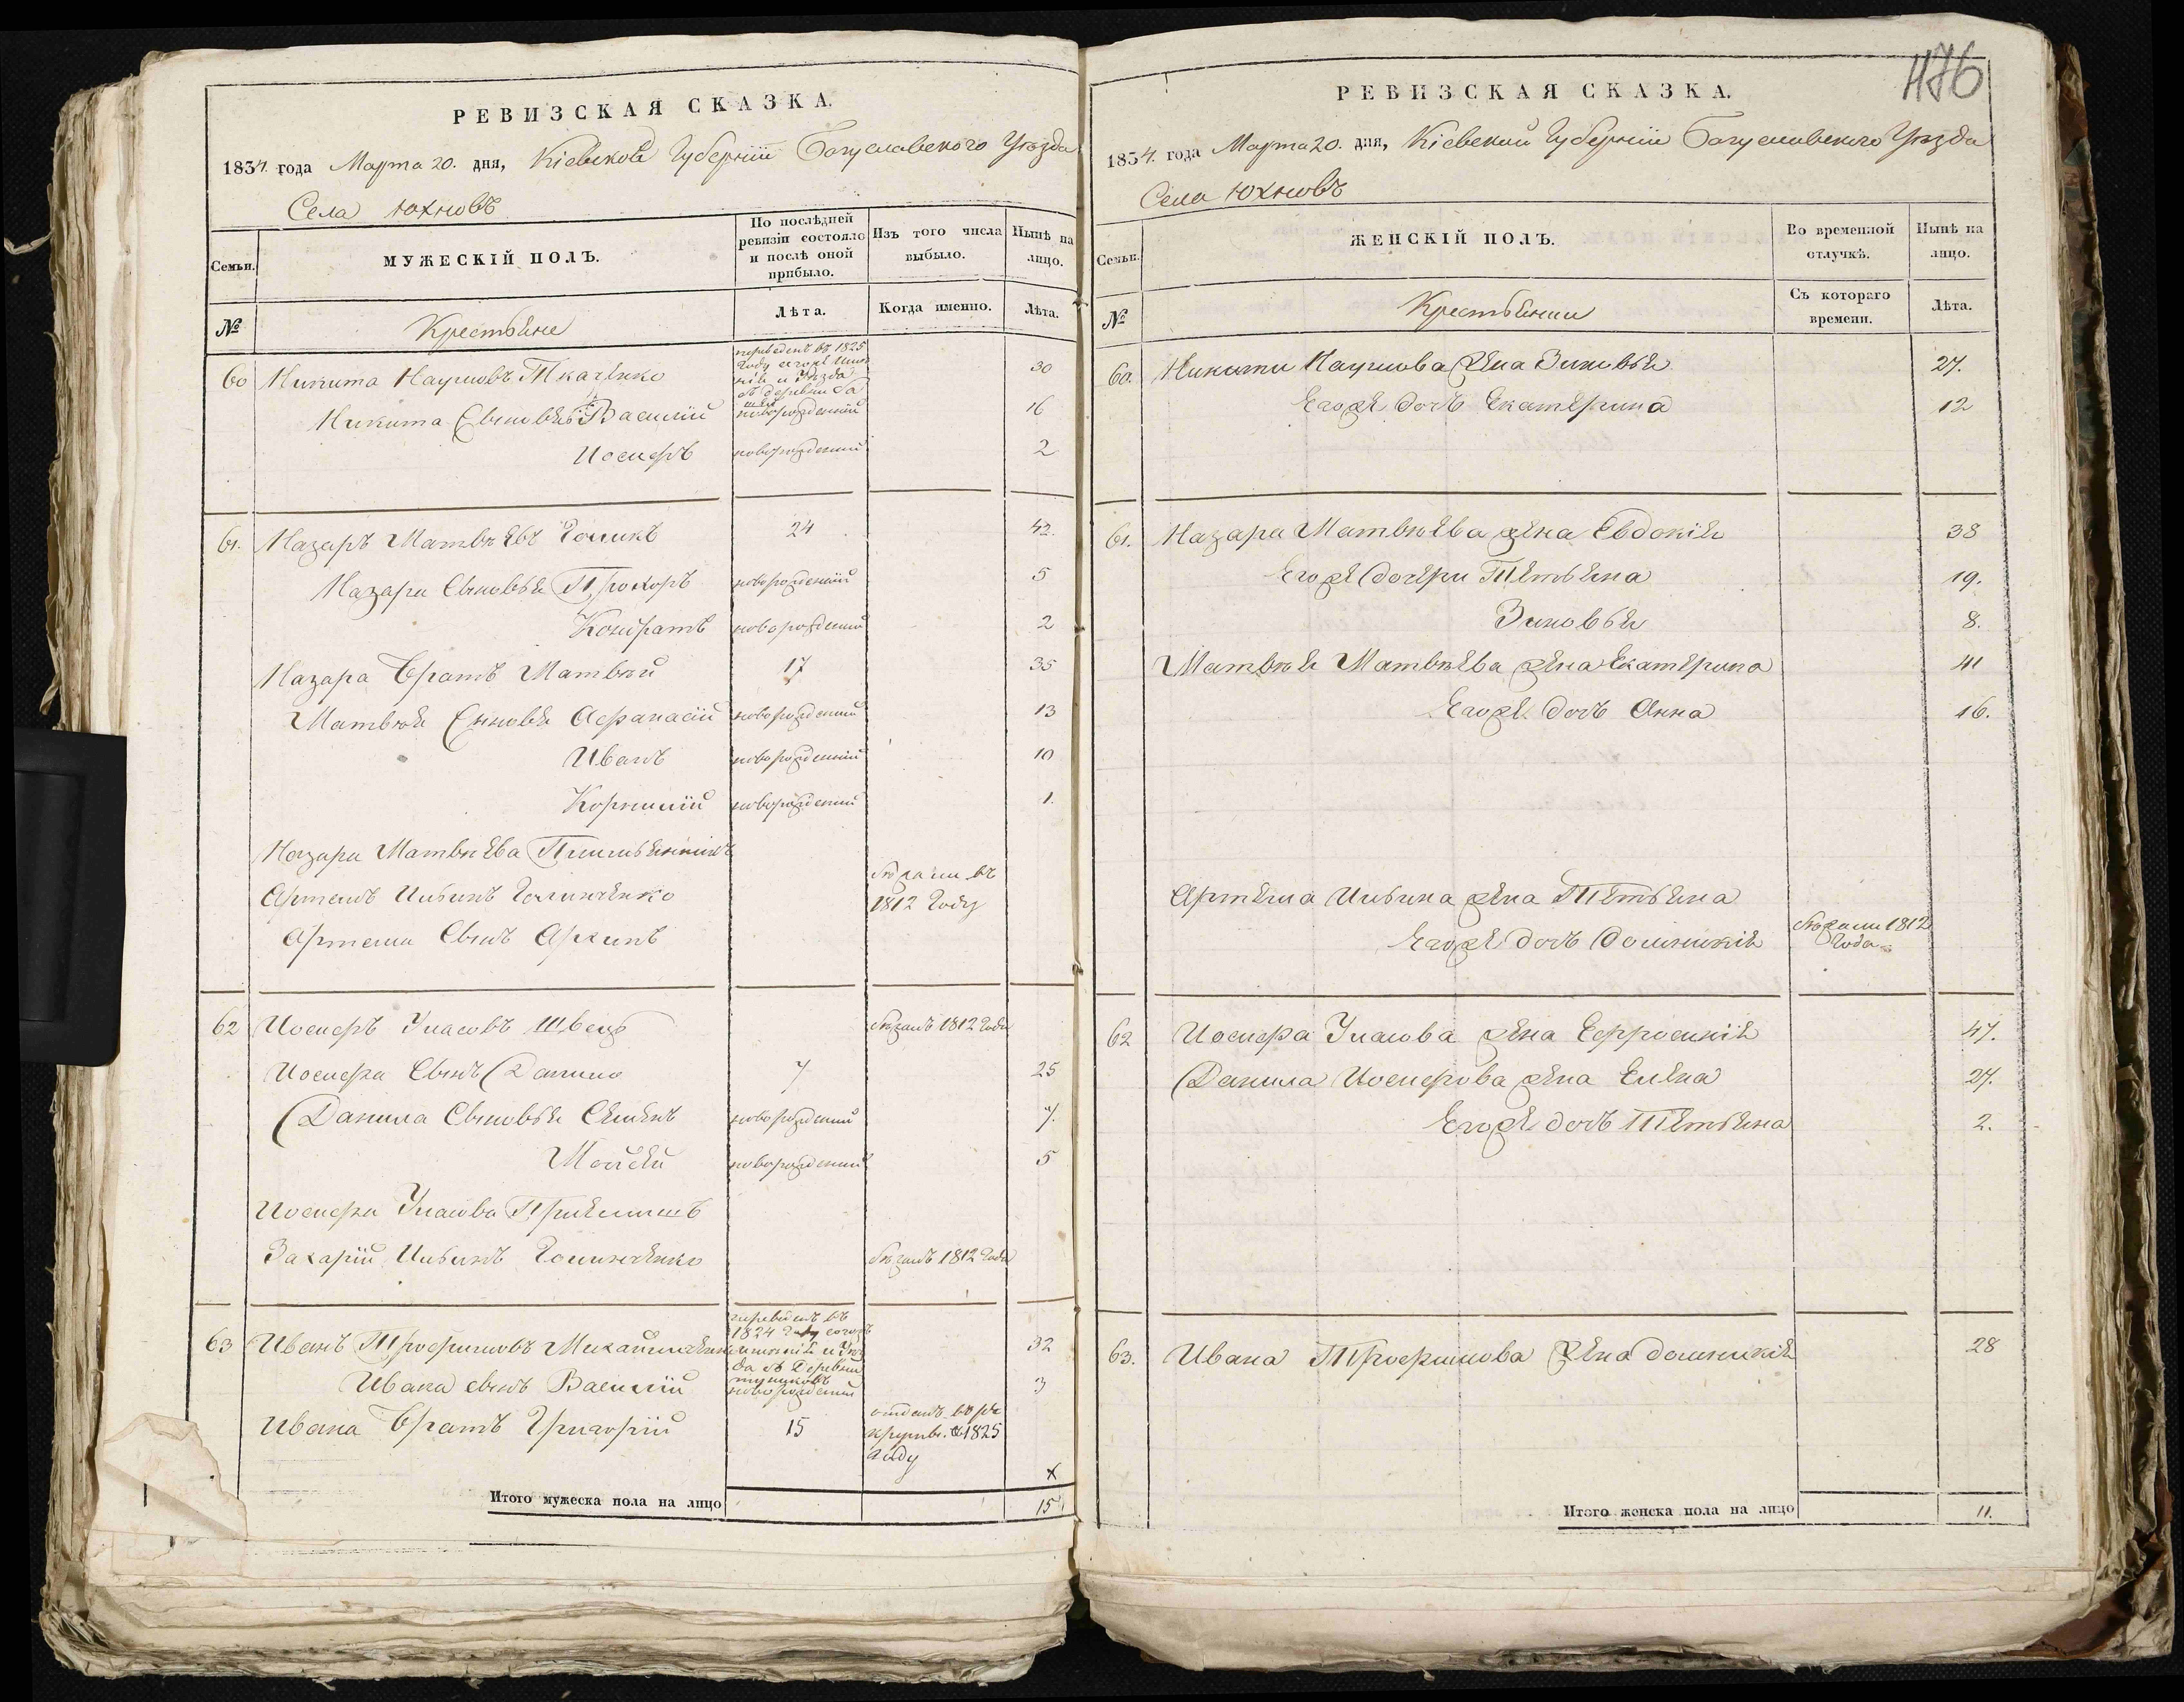 РЕВИЗСКАЯ СКАЗКА.
1834. года Марта 20. дня, Кіевской Губерніи Богуславского Уѣзда
Села Юхновъ
Семьи.
МУЖЕСКІЙ ПОЛЪ.
По послѣдней ревизіи состояло и послѣ оной прибыло.
Изъ того числа выбыло.
Нынѣ на лицо.
№
Крестьяне
Лѣта.
Когда именно.
Лѣта.
60 Никита Наумовъ Ткаченко 30
переведенъ въ 1825
году
и уѣзда
Никита Сыновья Василий новорожденій 16
Иосифъ новорожденій 2
61. Назаръ Матвѣевъ 24 42.
Назара Сыновья Прокоръ новорожденій 5
Кондратъ новорожденій 2
Назара братъ Матвѣй 17 35
Матвѣя Сыновья Афанасій новорожденій 13
Иванъ новорожденій 10
Корнилій новорожденій 1.
Назара Матвѣева Племьянникъ
бѣжали въ
Артемъ 1812 Году
Артема Сынъ Архипъ
62 Иосифъ Уласовъ Швецъ бѣжалъ 1812 Года
Иосифа Сынъ Данило 7 25
Данила Сыновья Семенъ новорожденій 7.
Мойсей новорожденій 5
Иосифа Уласова Приемышъ
Захарій бѣжалъ 1812 Года
63 Иванъ Трофимовъ 32
переведенъ въ
1824 Году
Ивана сынъ Василій новорожденій 3
Ивана братъ Григорій 15
отданъ въ ре
крути. въ 1825
Году
х
Итого мужеска пола на лицо 15
476
РЕВИЗСКАЯ СКАЗКА.
1834. года Марта 20. дня, Кіевской Губерніи Богуславского Уѣзда
Села Юхновъ
Семьи.
ЖЕНСКІЙ ПОЛЪ.
Во временной отлучкѣ.
Нынѣ на лицо.
№
Крестьянки
Съ котораго времени.
Лѣта.
60. Никиты Наумова жена Зиновья 27.
Егоже дочь Екатерина 12
61. Назара Матвѣева жена Евдокія 38
Егоже дочери Тетьяна 19.
Зиновья 8.
Матвѣя Матвѣева жена Екатерина 41
Егоже дочь Анна 16.
Артема жена Тетьяна
Егоже дочь Домникія бѣжали 1812 Года
62 Иосифа Уласова жена Ефросинія 47.
Данила Иосифова жена Елена 27.
Егоже дочь Тетьяна 2.
63. Ивана Трофимова жена домникія 28
Итого женска пола на лицо 11.